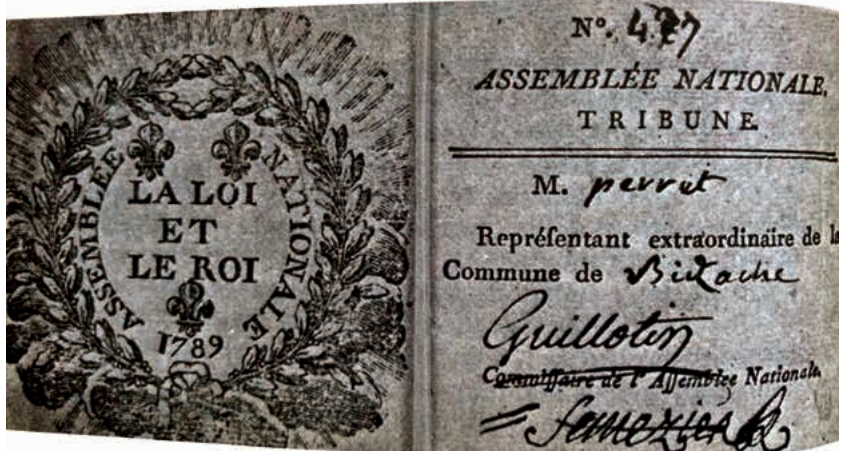 ASSEMBLÉE NATIONALE
LA LOI
ET
LE ROI
1789
Nº. 427
ASSEMBLÉE NATIONALE,
TRIBUNE.
M. perret
Repréſentant extraordinaire de la
Commune de Bidache
Guillotin
Commiſſaire de l'Aſſemblée Nationale.